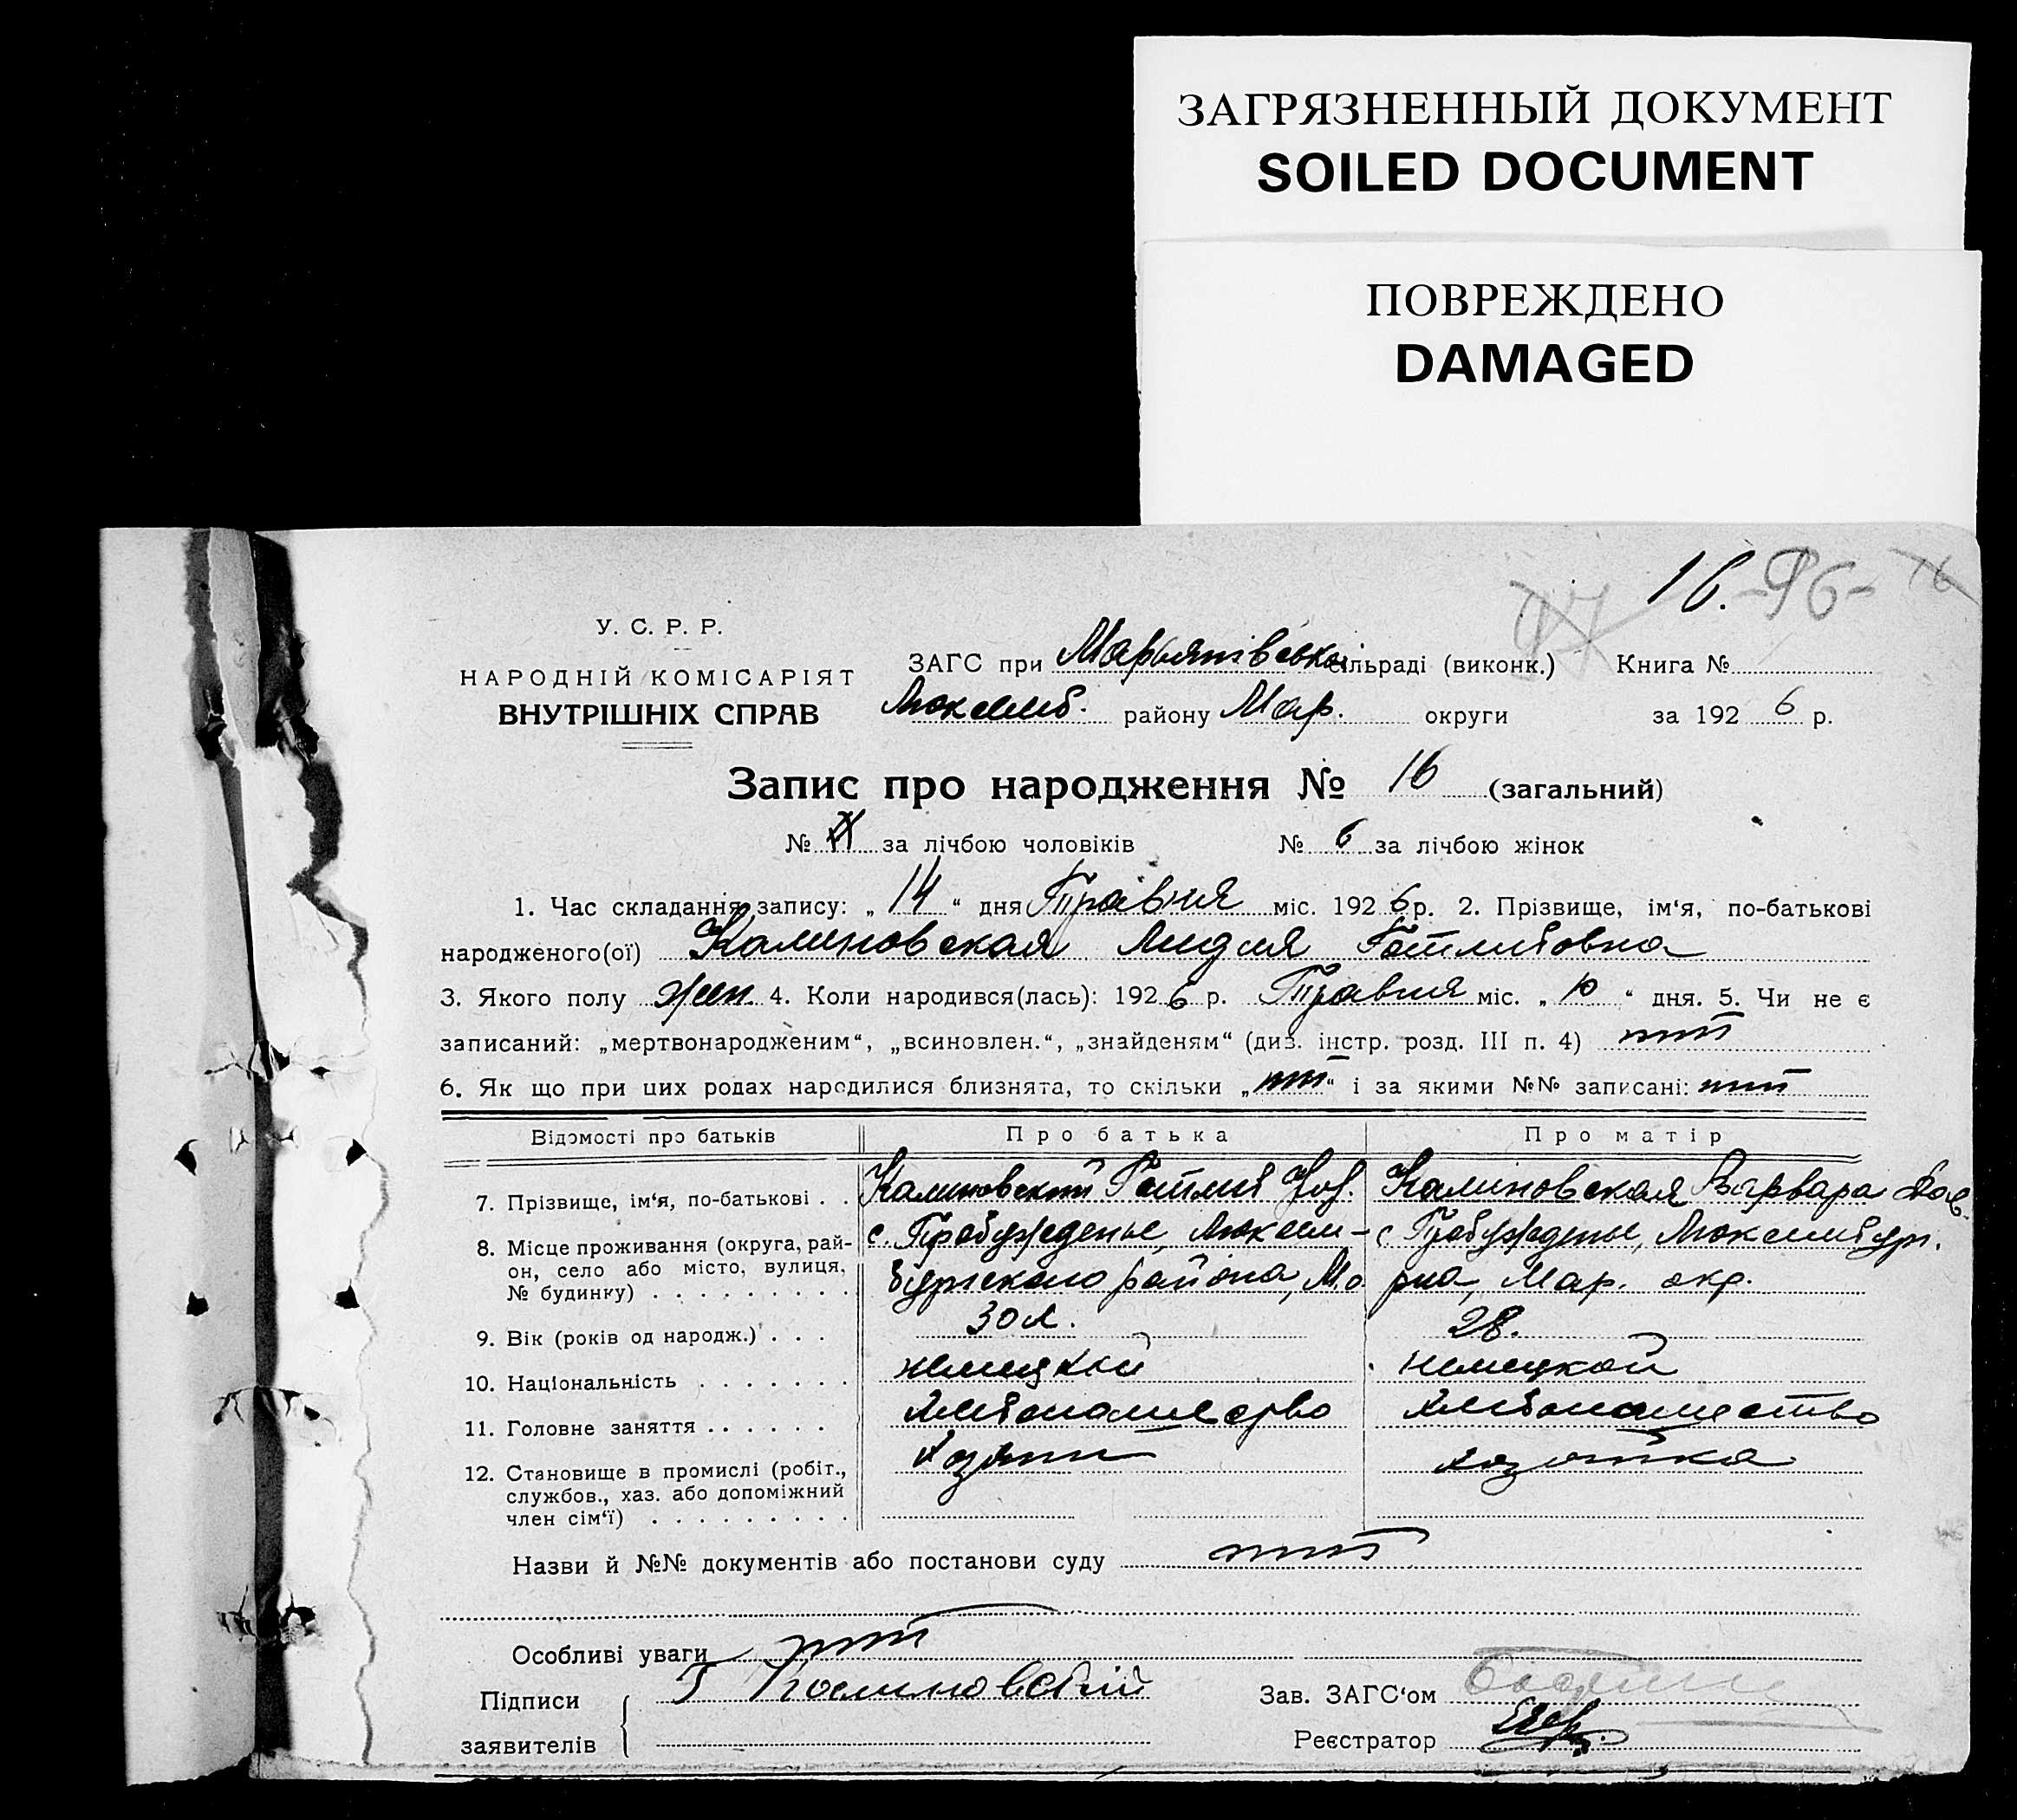 ЗАГРЯЗНЕННЫЙ ДОКУМЕНТ
SOILED DOCUMENT
ПОВРЕЖДЕНО
DAMAGED
16. -96- 16
У. С. Р. Р.
НАРОДНІЙ КОМІСАРІЯТ
ВНУТРІШНІХ СПРАВ
ЗАГС при Марьянівській сільраді (виконк.) Книга №
Люксемб. району Мар. округи за 192 6 р.
Запис про народження № 16 (загальний)
№ за лічбою чоловіків № 6 за лічбою жінок
1. Час складання запису: „ 14 “ дня Травня міс. 192 6 р. 2. Прізвище, ім‘я, по-батькові
народженого(ої) Калиновская Лидия Готлибовна
3. Якого полу жен. 4. Коли народився(лась): 192 6 р. Травня міс. „ 10 “ дня. 5. Чи не є
записаний: „мертвонародженим“, „всиновлен.“, „знайденям“ (див. інстр. розд. III п. 4) нит
6. Як що при цих родах народилися близнята, то скільки „ нит “ і за якими №№ записані: нит
Відомості про батьків Про батька Про матір
7. Прізвище, ім‘я, по-батькові . . Калиновский Готлиб Калиновская Варвара
8. Місце проживання (округа, рай- с. Пробужденье, Люксем- с Пробужденье, Люксембург.
он, село або місто, вулиця,
№ будинку) . . . . . . . . . бургского района, Ма рна, Мар. окр.
9. Вік (років од народж.) . . . 30 л. 28.
10. Національність . . . . . . . немецкой немецкой
11. Головне заняття . . . . . . Хлебопашество Хлебопашество
12. Становище в промислі (робіт., Хозяин хозяйка
службов., хаз. або допоміжний
член сім‘ї) . . . . . . . . .
Назви й №№ документів або постанови суду нит
Особливі уваги нит
Підписи Г Калиновский Зав. ЗАГС‘ом
заявителів Реєстратор